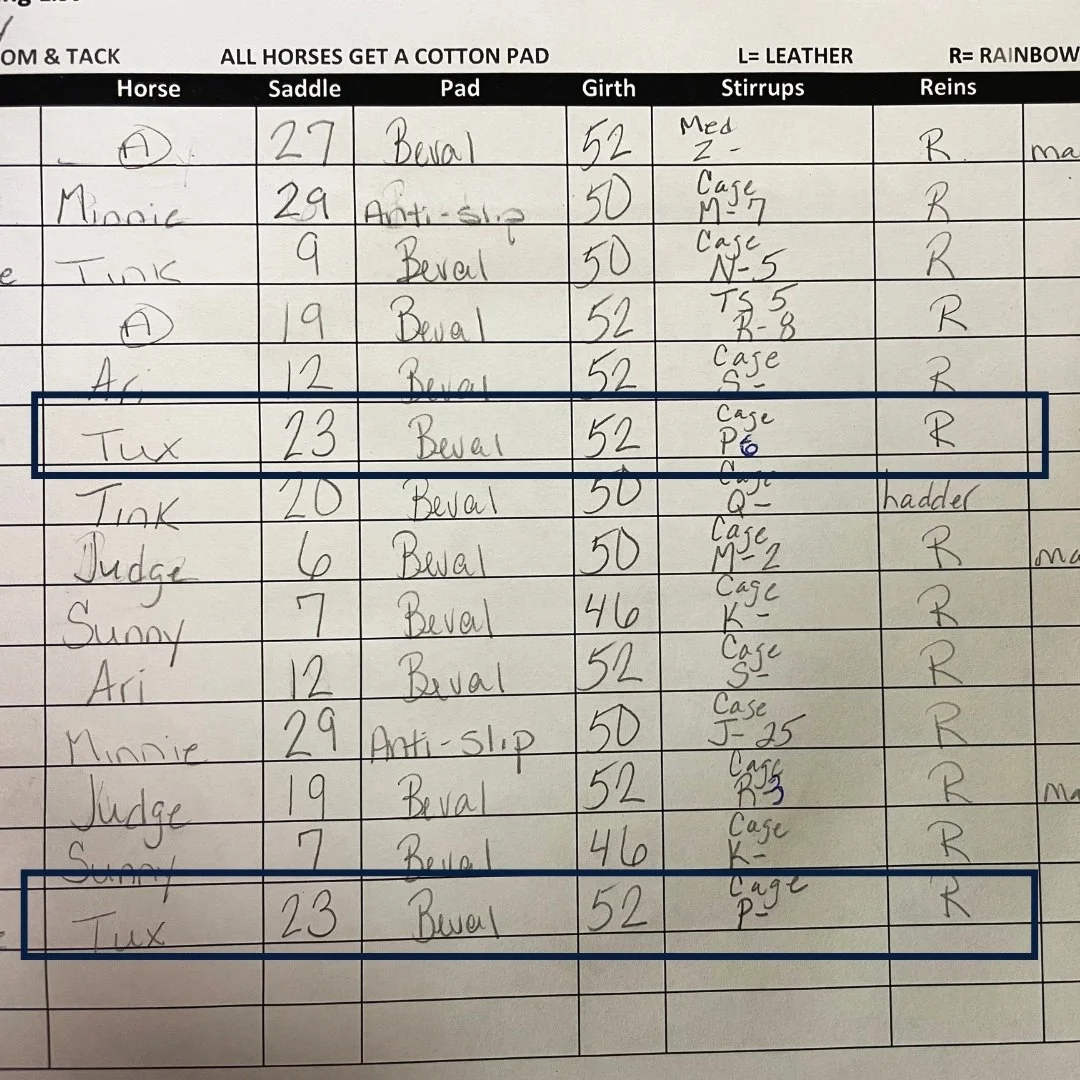 OM & TACK ALL HORSES GET A COTTON PAD L= LEATHER R= RAINBOW
Horse Saddle Pad Girth Stirrups Reins
A 27 Beval 52 Med Z - R ma
Minnie 29 Anti-slip 50 Cage M-7 R
e Tink 9 Beval 50 Cage N-5 R
A 19 Beval 52 TS 5 R-8 R
Ari 12 Beval 52 Cage S- R
Tux 23 Beval 52 Cage P6 R
Tink 20 Beval 50 Cage Q- hadder
Judge 6 Beval 50 Cage M-2 R ma
Sunny 7 Beval 46 Cage K- R
Ari 12 Beval 52 Cage S- R
Minnie 29 Anti-Slip 50 Cage J-25 R
Judge 19 Beval 52 Cage R-3 R ma
Sunny 7 Beval 46 Cage K- R
Tux 23 Beval 52 Cage P- R